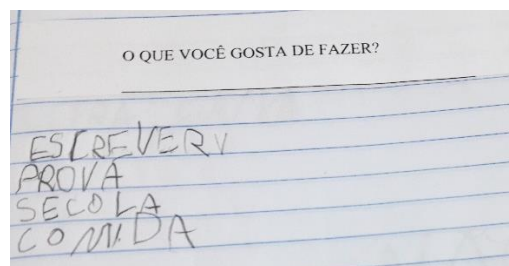 O QUE VOCÊ GOSTA DE FAZER?
ESCREVERV
PROVA
SECOLA
COMIDA